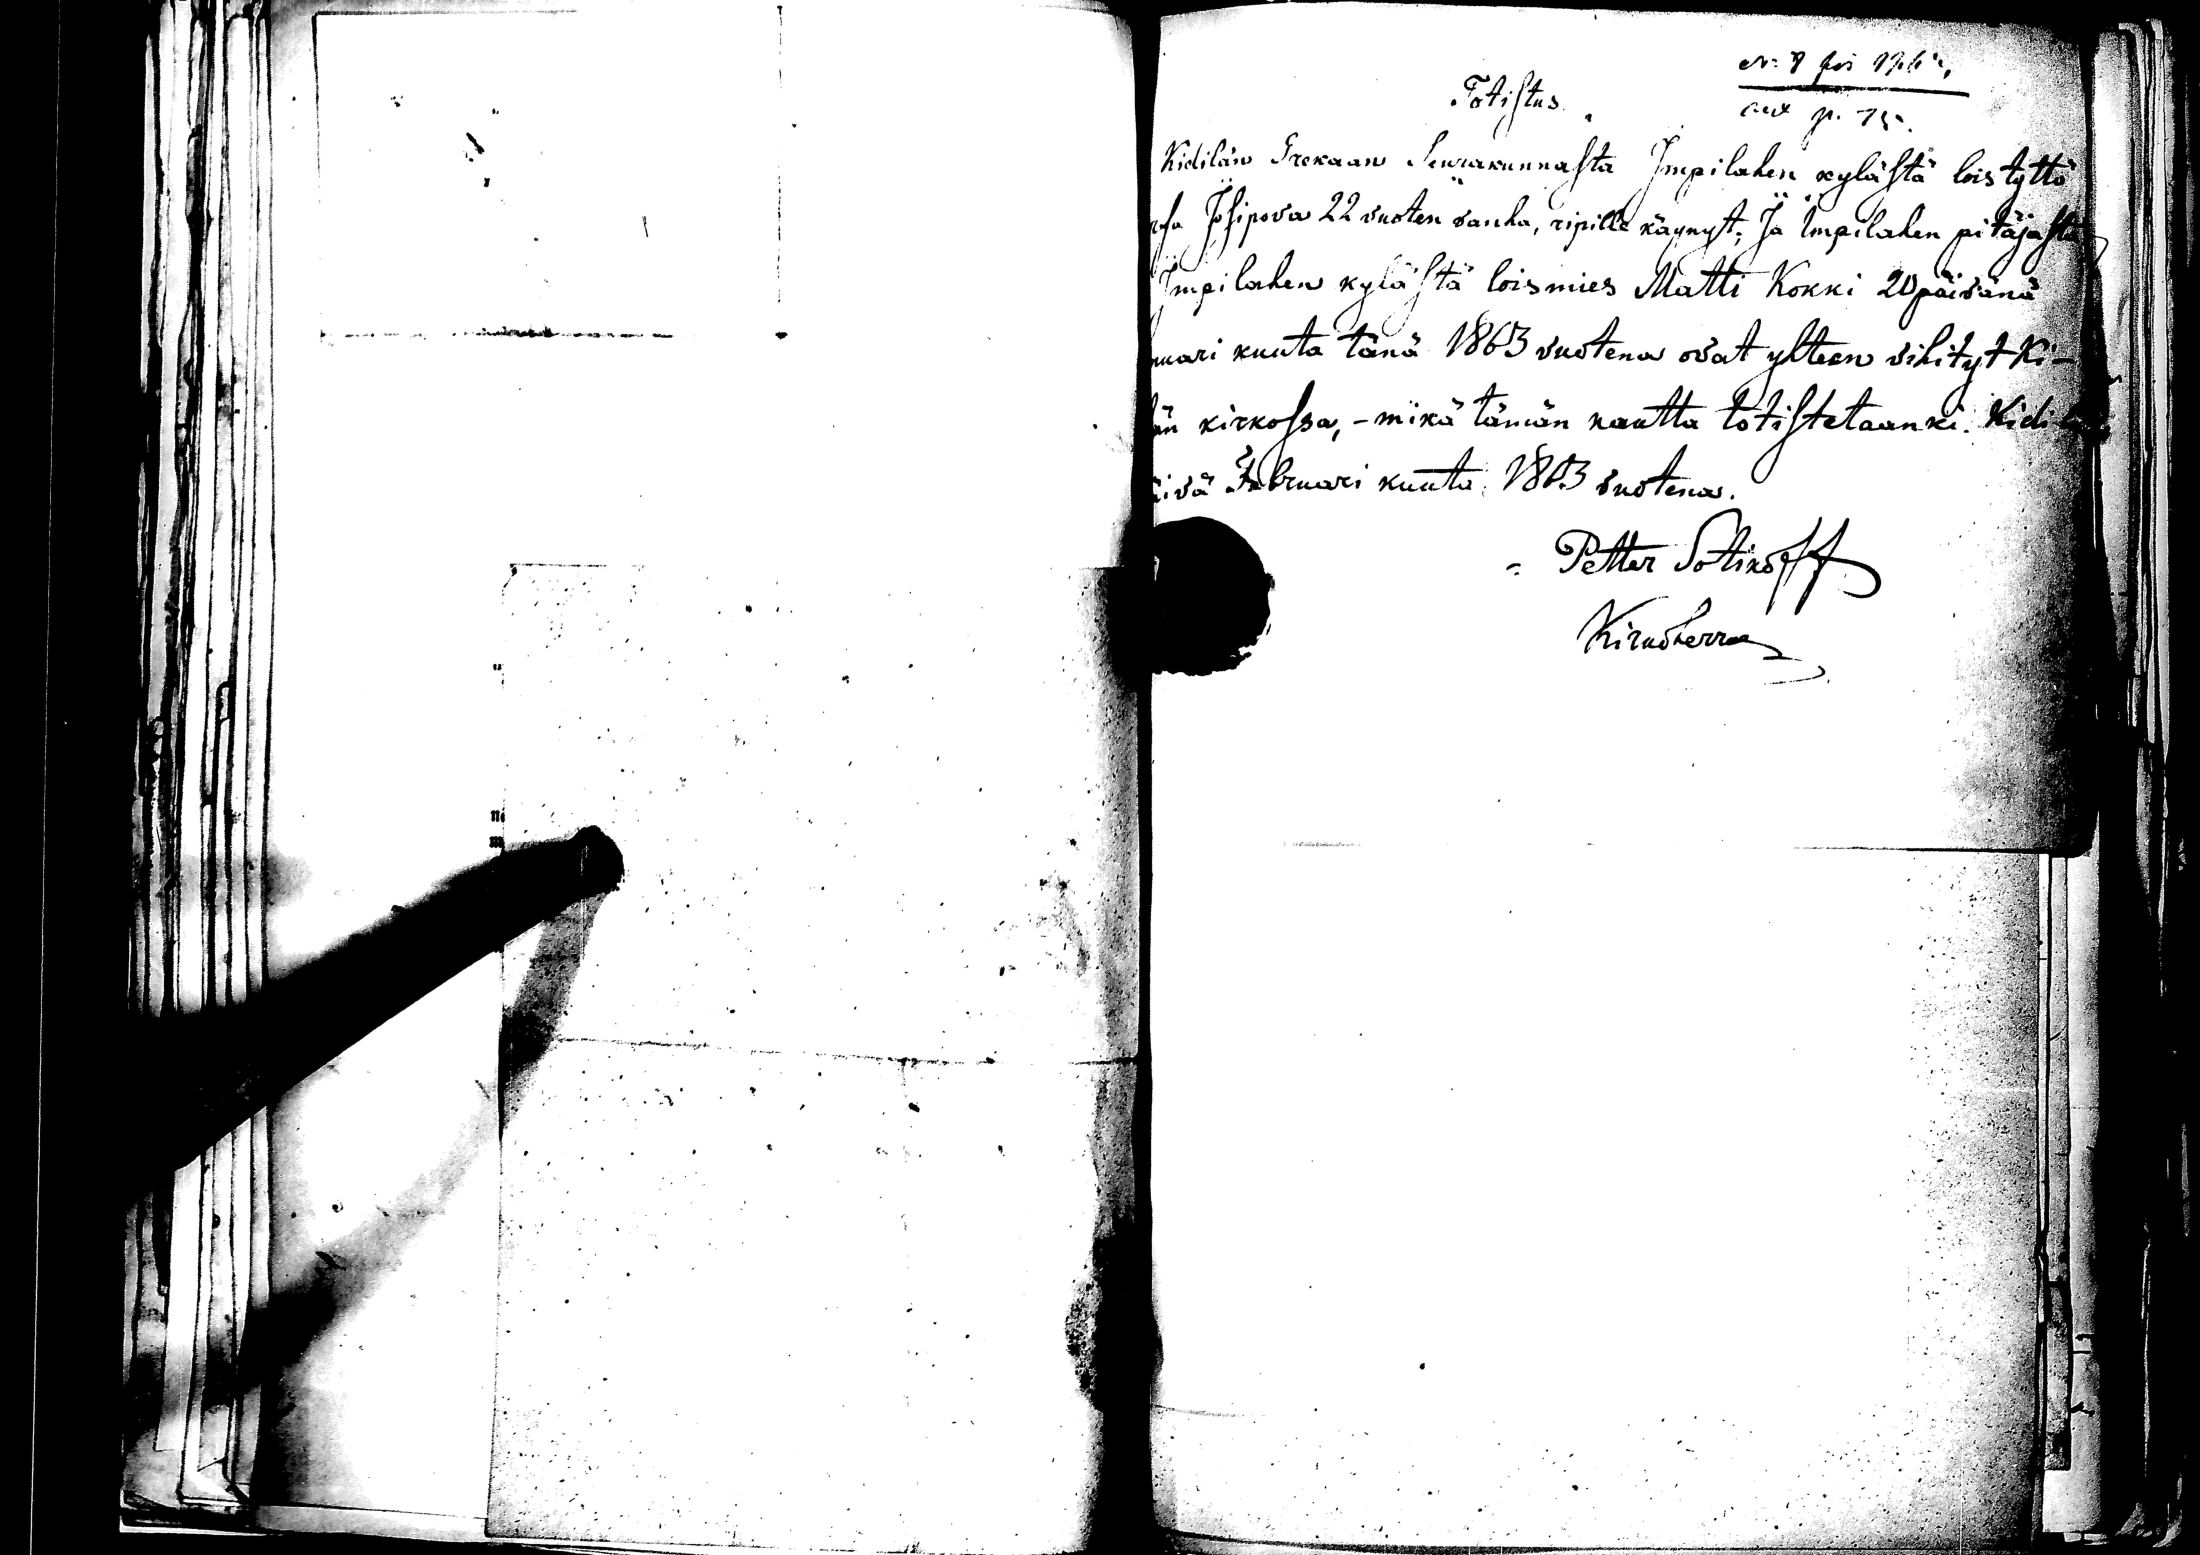 Totistus.
N: 8 för 1763,
art p. 75.
Kidilän Grekaan Seurakunnasta Impilahen kylästä lois tyttö
Josipova 22 vuoten vanha, ripille käynyt, Ja Impilahen pitäjästä
Impilahen kylästä loismies Matti Kokki 20 päivänä
nuari kuuta tänä 1863 vuotena ovat yhteen vihityt Ki-
län kirkossa, - mikä tämän kautta totistetaanki. Kidilä
äivä Februari kuuta 1863 vuotena.
Petter Sotikoff
Kirkoherra